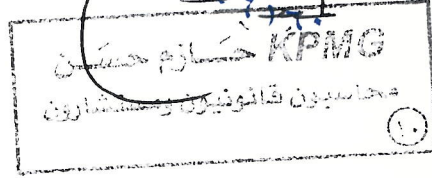 KPMG حسازم حسن
محاسبون قانونيون ومستشارون
١٠